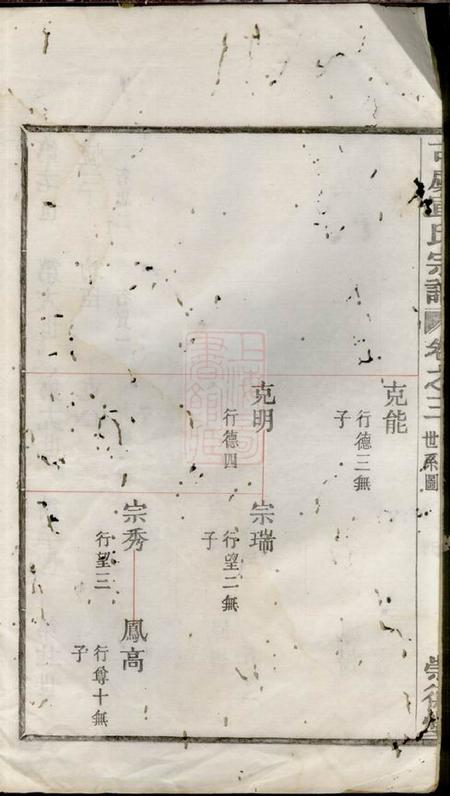 氏宗譜 卷之三 世系圖
克能
行德三無
子
克明
行德四
宗瑞
行望二無
子
宗秀
行望三
鳳高
行尊十無
子
上海圖書館藏